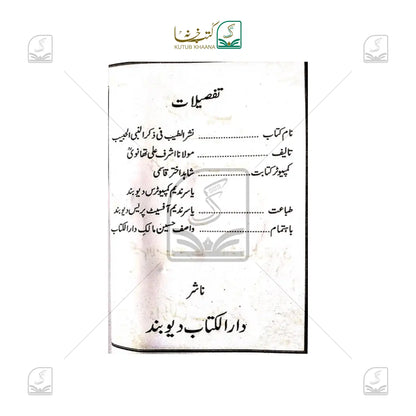 کتب خانہ
KUTUB KHAANA
تفصیلات
نام کتاب ............ نشر الطیب فی ذکر النبی الحبیب
تالیف ............ مولانا اشرف علی تھانویؒ
کمپیوٹر کتابت ............ شاہد اختر قاسمی
یاسر ندیم کمپیوٹرس دیوبند
طباعت ............ یاسر ندیم آفسیٹ پریس دیوبند
باہتمام ............ واصف حسین مالک دارالکتاب
ناشر
دارالکتاب دیوبند